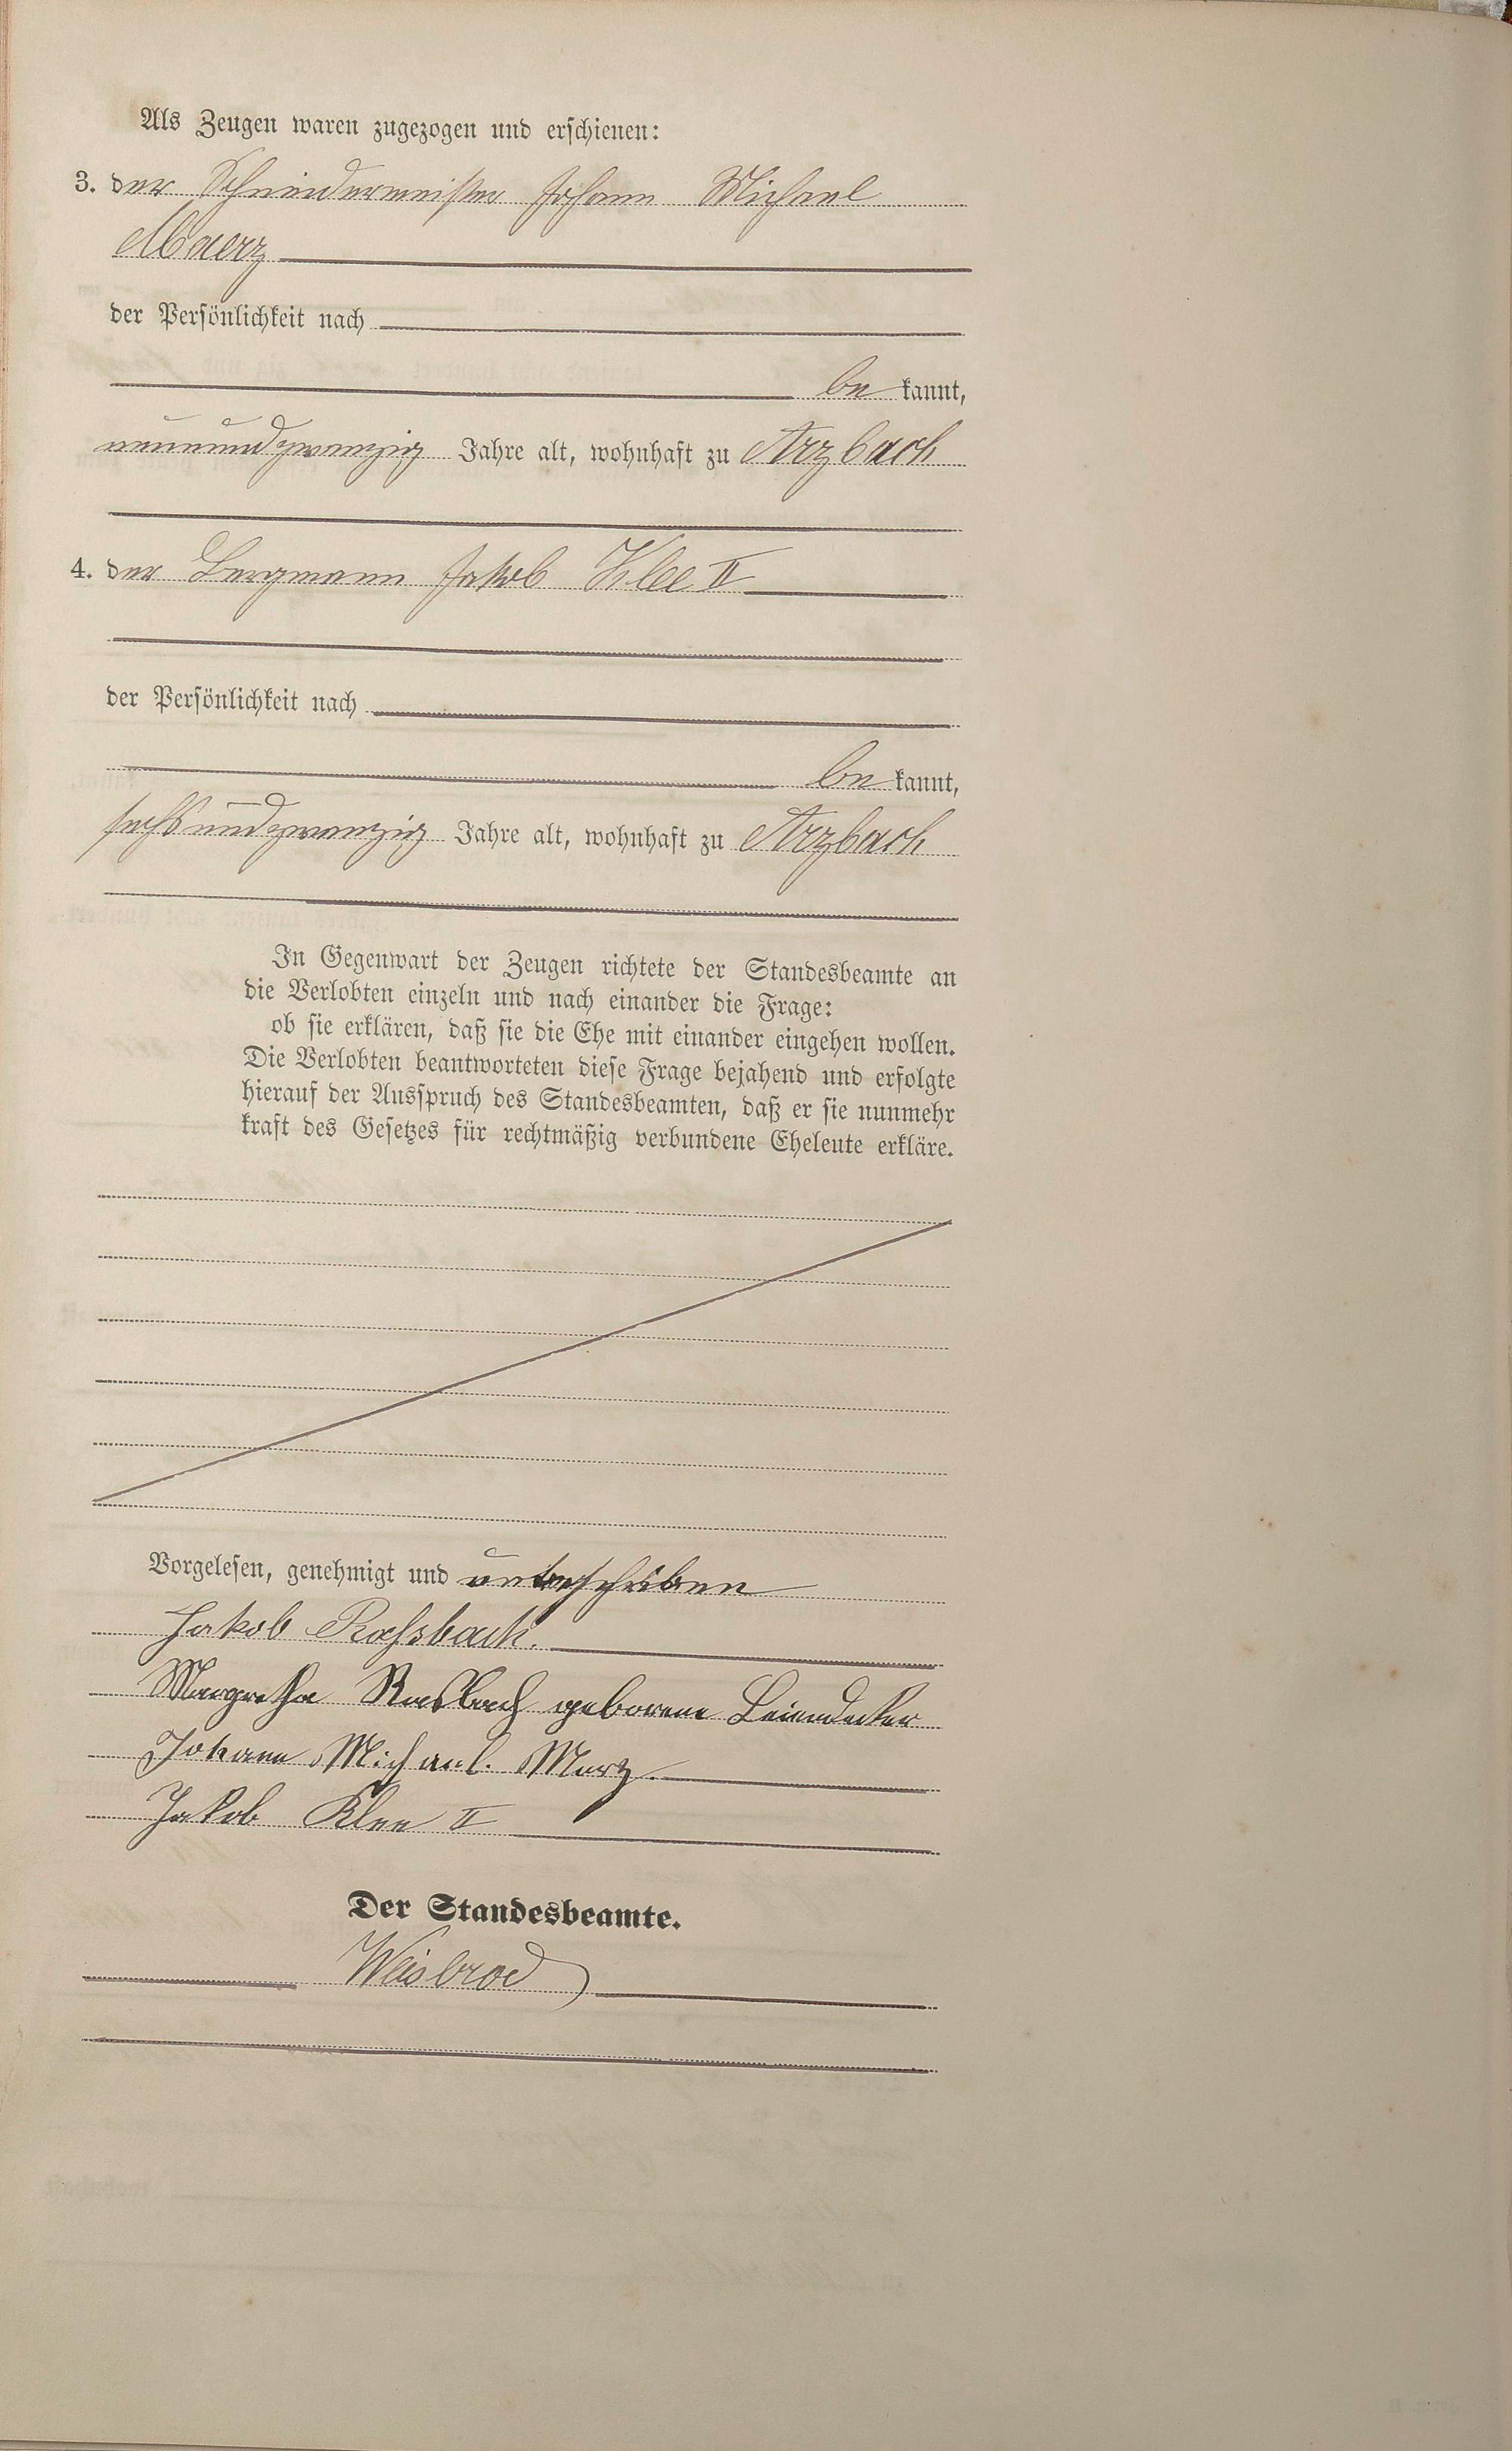 Als Zeugen waren zugezogen und erschienen:
3. der Schneidermeister Johann Michael
Maerz
der Persönlichkeit nach
be kannt,
neunundzwanzig Jahre alt, wohnhaft zu Arzbach
4. der Bergmann Jakob Klee II
der Persönlichkeit nach
be kannt,
sechsundzwanzig Jahre alt, wohnhaft zu Arzbach
In Gegenwart der Zeugen richtete der Standesbeamte an
die Verlobten einzeln und nach einander die Frage:
ob sie erklären, daß sie die Ehe mit einander eingehen wollen.
Die Verlobten beantworteten diese Frage bejahend und erfolgte
hierauf der Ausspruch des Standesbeamten, daß er sie nunmehr
kraft des Gesetzes für rechtmäßig verbundene Eheleute erkläre.
Vorgelesen, genehmigt und unterschrieben
Jakob Rossbach.
Margretha Rosbach geborene Leiendecker
Johann Michael. Merz.
Jakob Klee II
Der Standesbeamte.
Weisbrod